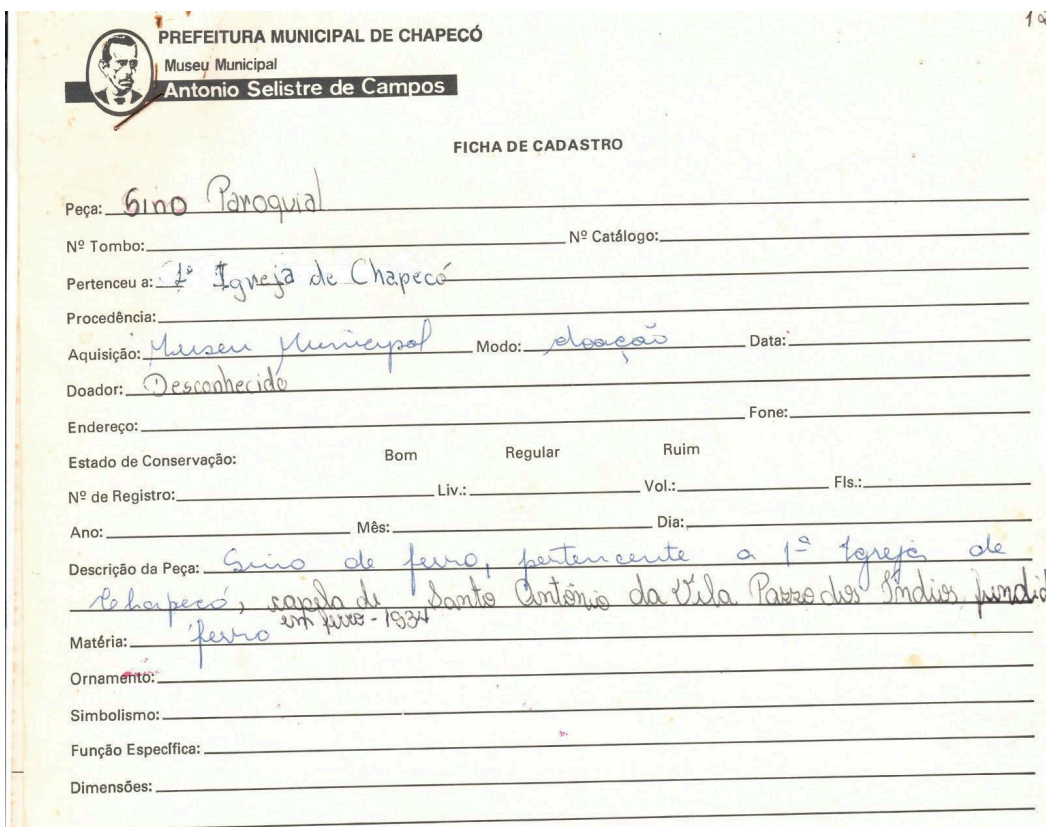 PREFEITURA MUNICIPAL DE CHAPECÓ
Museu Municipal
Antonio Selistre de Campos
FICHA DE CADASTRO
Peça: Sino Paroquial
Nº Tombo: Nº Catálogo:
Pertenceu a: 1ª Igreja de Chapecó
Procedência:
Aquisição: Museu Municipal Modo: doação Data:
Doador: Desconhecido
Endereço: Fone:
Estado de Conservação: Bom Regular Ruim
Nº de Registro: Liv.: Vol.: Fls.:
Ano: Mês: Dia:
Descrição da Peça: Sino de ferro, pertencente a 1ª Igreja de
Chapecó, capela de Santo Antônio da Vila Passo dos Índios, fundid
em ferro - 1934
Matéria: ferro
Ornamento:
Simbolismo:
Função Específica:
Dimensões: